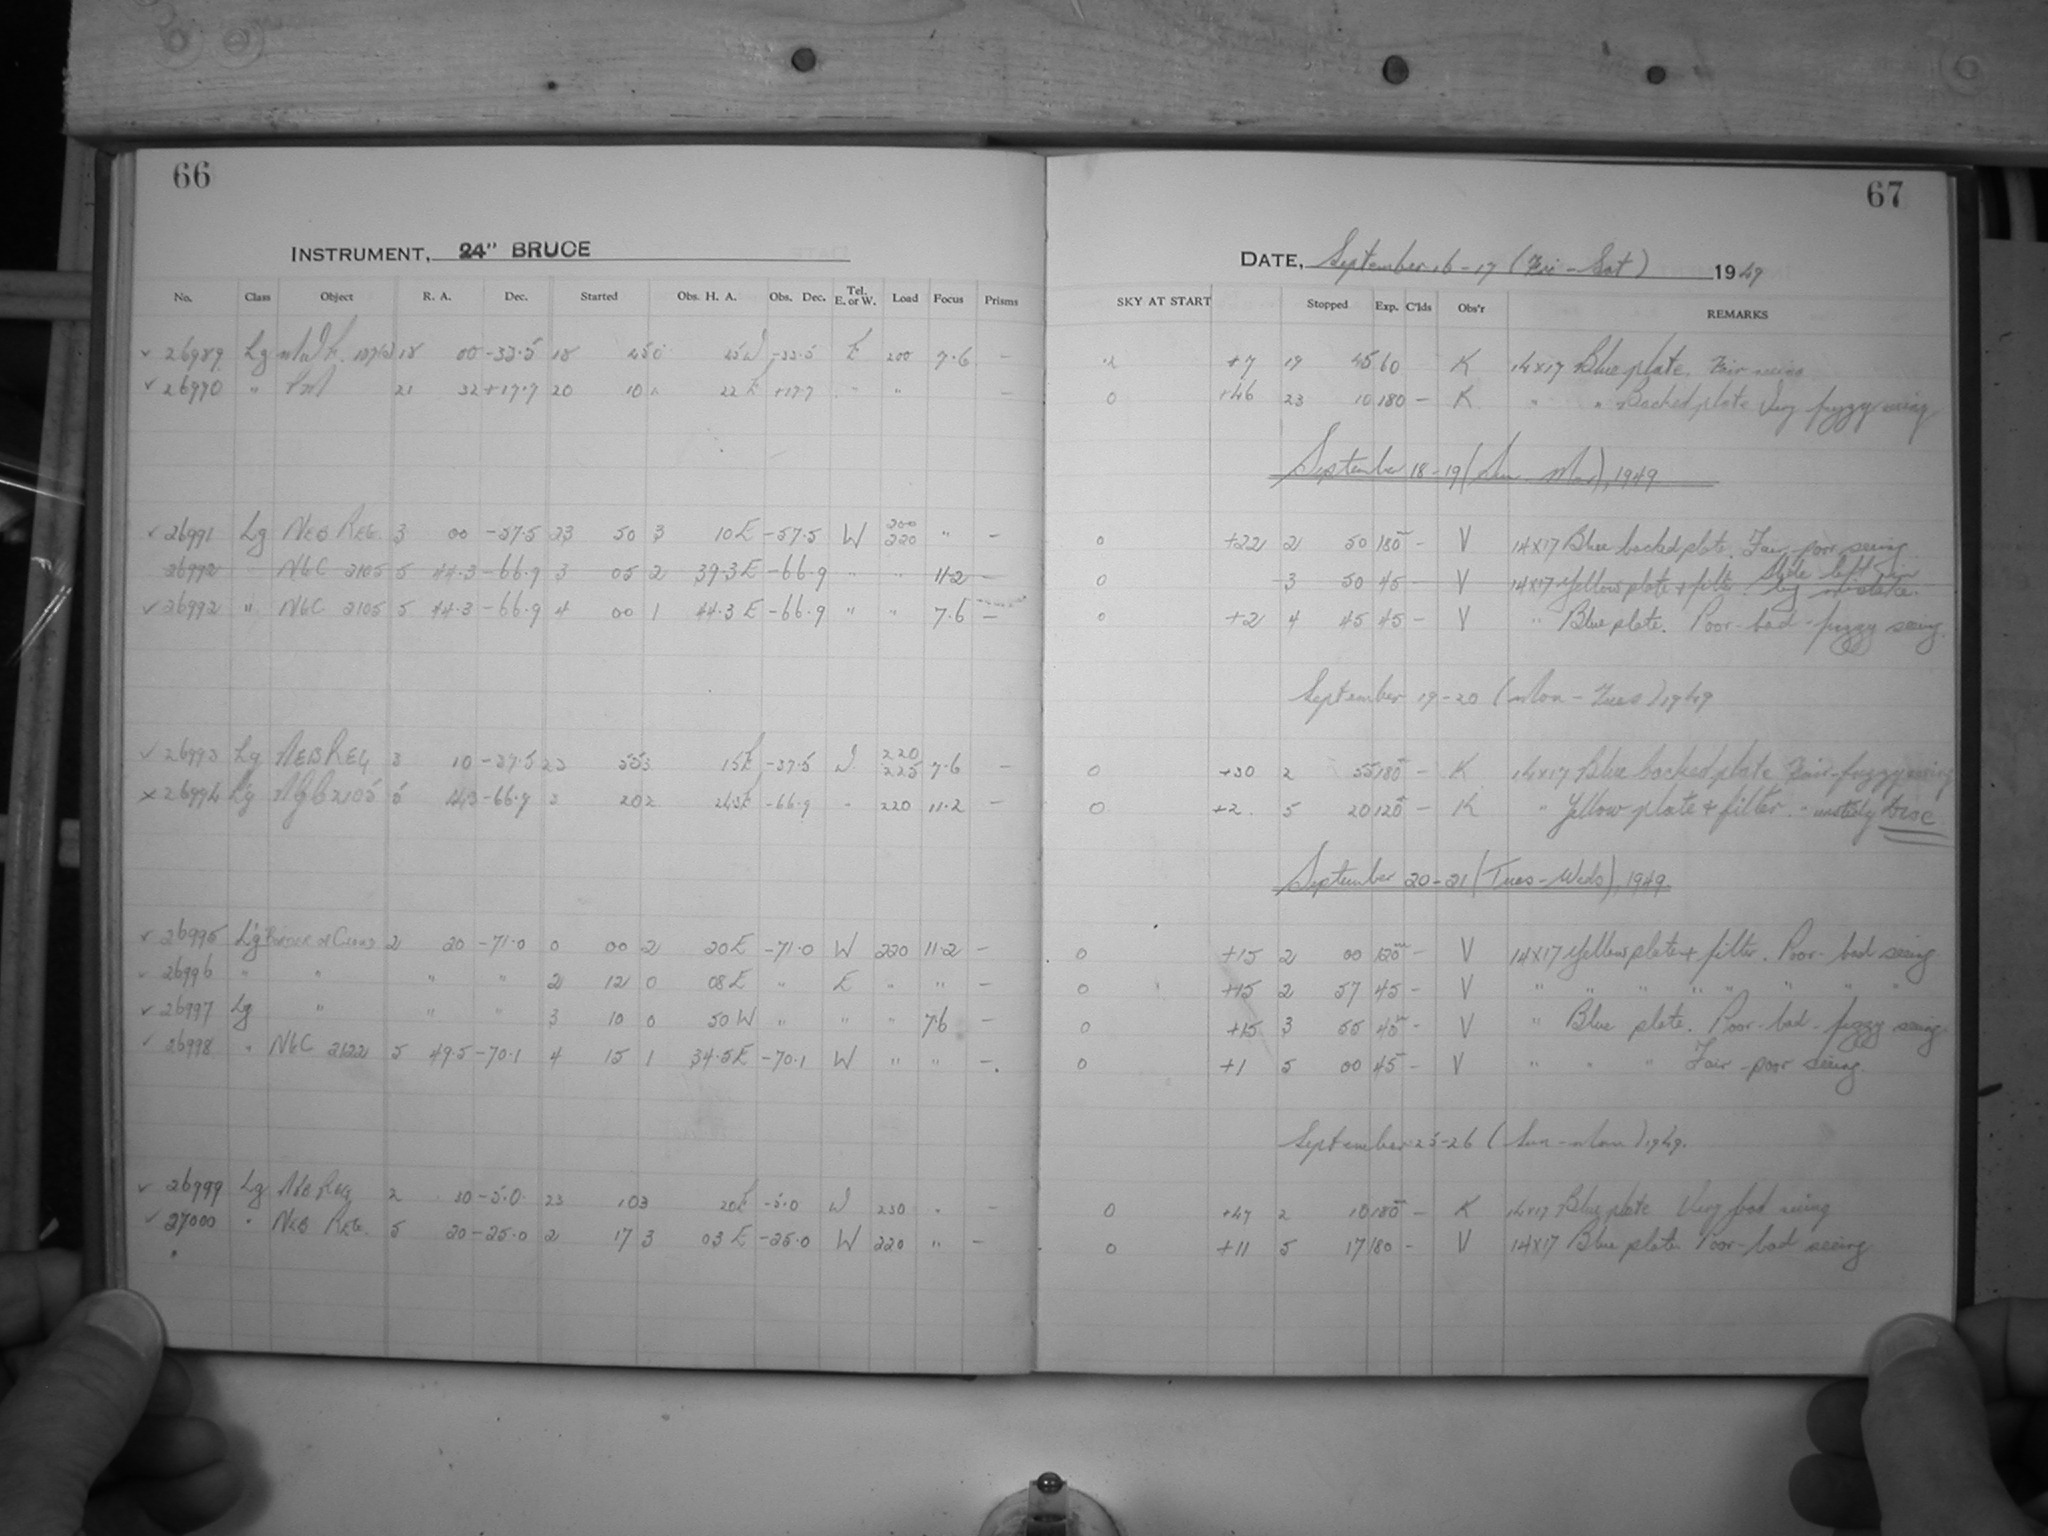 66
INSTRUMENT, 24" BRUCE
No. Class Object R. A. Dec. Started Obs. H. A. Obs. Dec. Tel. E. or W. Load Focus Prisms
26989 Lg 18 00 -33.5 18 45 0 25 W -33.5 E 200 7.6 -
26990 " 21 32 +17.7 20 10 22 E +17.7 - " -
26991 Lg NEB REG. 3 00 -57.5 23 50 3 10 E -57.5 W 200 220 " -
26992 " NGC 2105 5 44.3 -66.9 3 05 2 39.3 E -66.9 " " 11.2 -
26992 " NGC 2105 5 44.3 -66.9 4 00 1 44.3 E -66.9 " " 7.6 -
26993 Lg NEB REG 3 10 -37.5 23 55 3 15 E -37.5 W 220 225 7.6 -
x 26994 Lg NGC 2105 5 -66.9 3 20 2 -66.9 " 220 11.2 -
26995 Lg 2 20 -71.0 0 00 2 20 E -71.0 W 220 11.2 -
26996 " " " " 2 12 0 08 E " E " " -
26997 Lg " " " 3 10 0 50 W " " " 7.6 -
26998 " NGC 2122 5 49.5 -70.1 4 15 1 34.5 E -70.1 W " " -
26999 Lg Neb Reg 2 30 -5.0 23 10 3 20 E -5.0 W 230 " -
27000 " NEB REG. 5 20 -25.0 2 17 3 03 E -25.0 W 220 " -
67
DATE, September 16-17 (Fri-Sat) 1949
SKY AT START Stopped Exp. C'lds Obs'r REMARKS
+7 19 45 60 K 14x17 Blue plate. Fair seeing
0 +46 23 10 180 - K " " Backed plate Very fuzzy seeing
September 18-19 (Sun-Mon), 1949
0 +22 2 50 180 - V 14x17 Blue backed plate. Fair-poor seeing
0 3 50 45 - V 14x17 Yellow plate + filter. Slide left in by mistake.
0 +2 4 45 45 - V " Blue plate. Poor-bad-fuzzy seeing.
September 19-20 (Mon-Tues) 1949
0 +30 2 55 180 - K 14x17 Blue backed plate Fair-fuzzy seeing
0 +2 5 20 120 - K " Yellow plate + filter. "
September 20-21 (Tues-Weds), 1949
0 +15 2 00 120 - V 14x17 Yellow plate + filter. Poor-bad seeing
0 +15 2 57 45 - V " " " " " " " "
0 +15 3 55 45 - V " Blue plate. Poor-bad-fuzzy seeing
0 +1 5 00 45 - V " " " Fair-poor seeing.
September 25-26 (Sun-Mon) 1949.
0 +47 2 10 180 - K 14x17 Blue plate Very bad seeing
0 +11 5 17 180 - V 14x17 Blue plate Poor-bad seeing